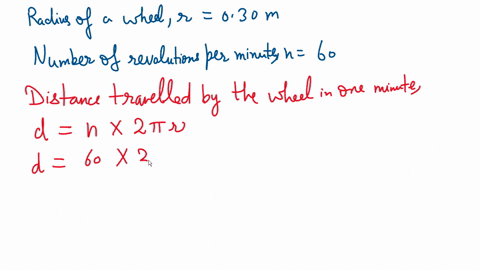 Radius of a wheel, r = 0.30 m
Number of revolutions per minute, n = 60
Distance travelled by the wheel in one minute,
d = n × 2πr
d = 60 × 2